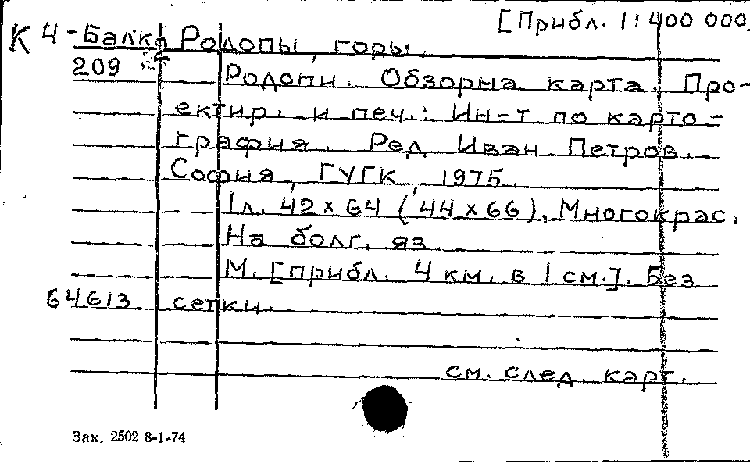 [Прибл. 1:400 000
К 4-Балк Родопы, горы.
209 Родопи. Обзорна карта. Про-
ектир. и печ.: Ин-т по карто-
графия. Ред. Иван Петров.
София, ГУГК, 1975.
1 л. 42 x 64 (44 x 66). Многокрас.
На болг. яз.
М. [прибл. 4 км. в 1 см.]. Без
64613 сетки.
см. след. карт.
Зак. 2502 8-1-74